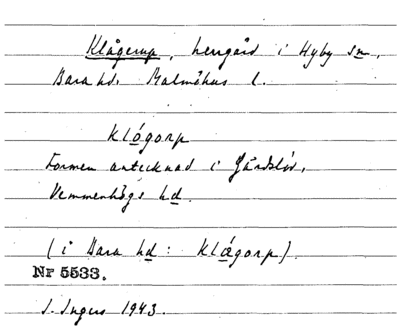 Klågerup, herrgård i Hyby sn,
Bara hd. Malmöhus l.
Klógorp
Formen antecknad i Gärdslöv,
Vemmenhögs hd.
(i Bara hd: Klǽgorp).
Nr 5533.
I. Ingers 1943.